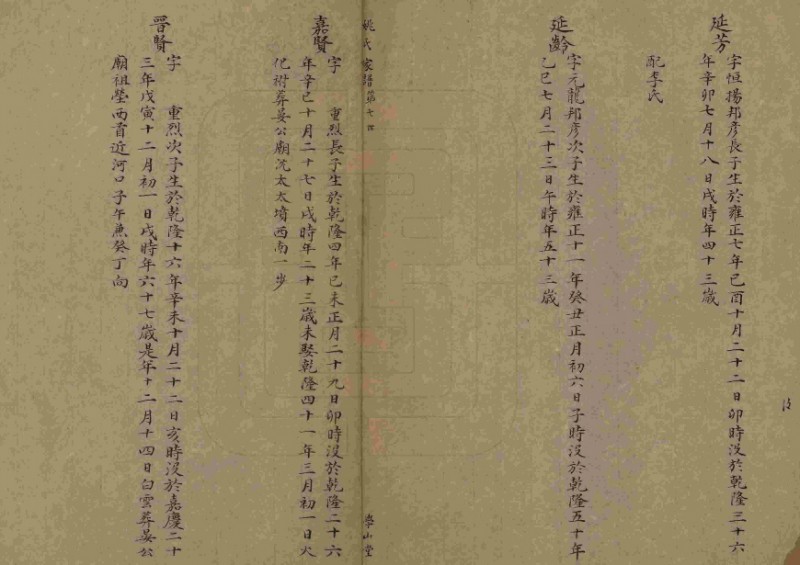 延芳
字恒揚邦彥長子生於雍正七年己酉十月二十二日卯時沒於乾隆三十六
年辛卯七月十八日戌時年四十三歲
配李氏
延齡
字元龍邦彥次子生於雍正十一年癸丑正月初六日子時沒於乾隆五十年
乙巳七月二十三日午時年五十三歲
姚氏家譜第七四
學山堂
嘉賢
字 重烈長子生於乾隆四年己未正月二十九日卯時沒於乾隆二十六
年辛巳十月二十七日戌時年二十三歲未娶乾隆四十一年三月初一日火
化祔葬晏公廟沈太太墳西南一步
晋賢
字 重烈次子生於乾隆十六年辛未十月二十二日亥時沒於嘉慶二十
三年戊寅十二月初一日戌時年六十七歲是年十二月十四日白雲葬晏公
廟祖塋西首近河口子午兼癸丁向